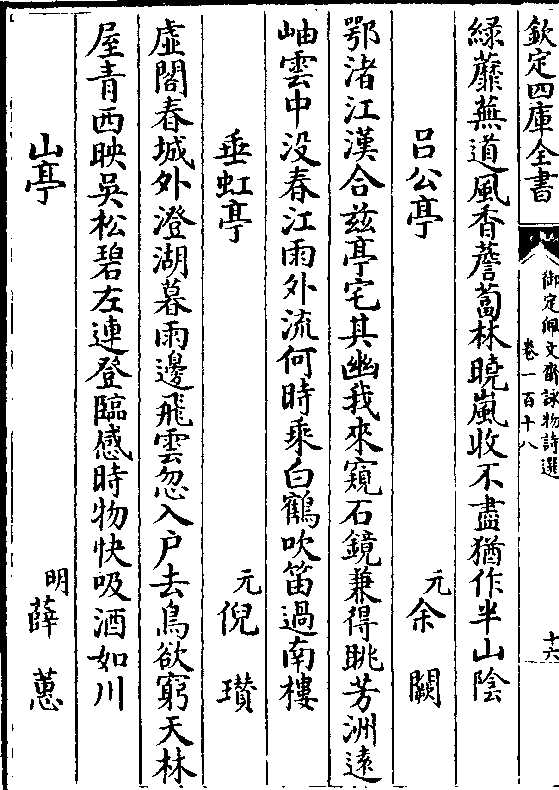 欽定四庫全書
御定佩文齋詠物詩選
卷一百十八
十六
緑蘼蕪道風香薝蔔林曉嵐收不盡猶作半山陰
吕公亭
元余闕
鄂渚江漢合兹亭宅其幽我來窺石鏡兼得眺芳洲遠
岫雲中没春江雨外流何時乘白鶴吹笛過南樓
垂虹亭
元倪瓚
虛閣春城外澄湖暮雨邊飛雲忽入户去鳥欲窮天林
屋青西映吳松碧左連登臨感時物快吸酒如川
山亭
明薛蕙